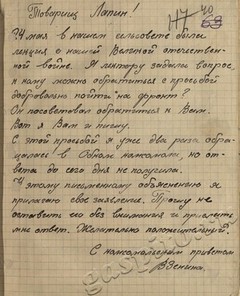 Товарищ Лапин!
24 мая в нашем сельсовете была
лекция о нашей Великой отечествен-
ной войне. Я лектору задала вопрос,
к кому можно обратиться с просьбой
добровольно пойти на фронт?
Он посоветовал обратиться к Вам.
Вот я Вам и пишу.
С этой просьбой я уже два раза обра-
щалась в Обком комсомола, но от-
вета до сего дня не получила.
К этому письменному объяснению я
прилагаю свое заявление. Прошу не
оставить его без внимания и прислать
мне ответ. Желательно положительный.
С комсомольским приветом